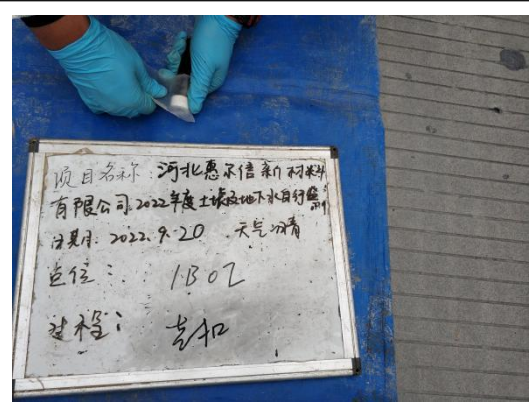 项目名称:河北惠尔信新材料
有限公司2022年度土壤及地下水自行监测
日期:2022.9.20 天气:晴
点位: 1B02
过程: